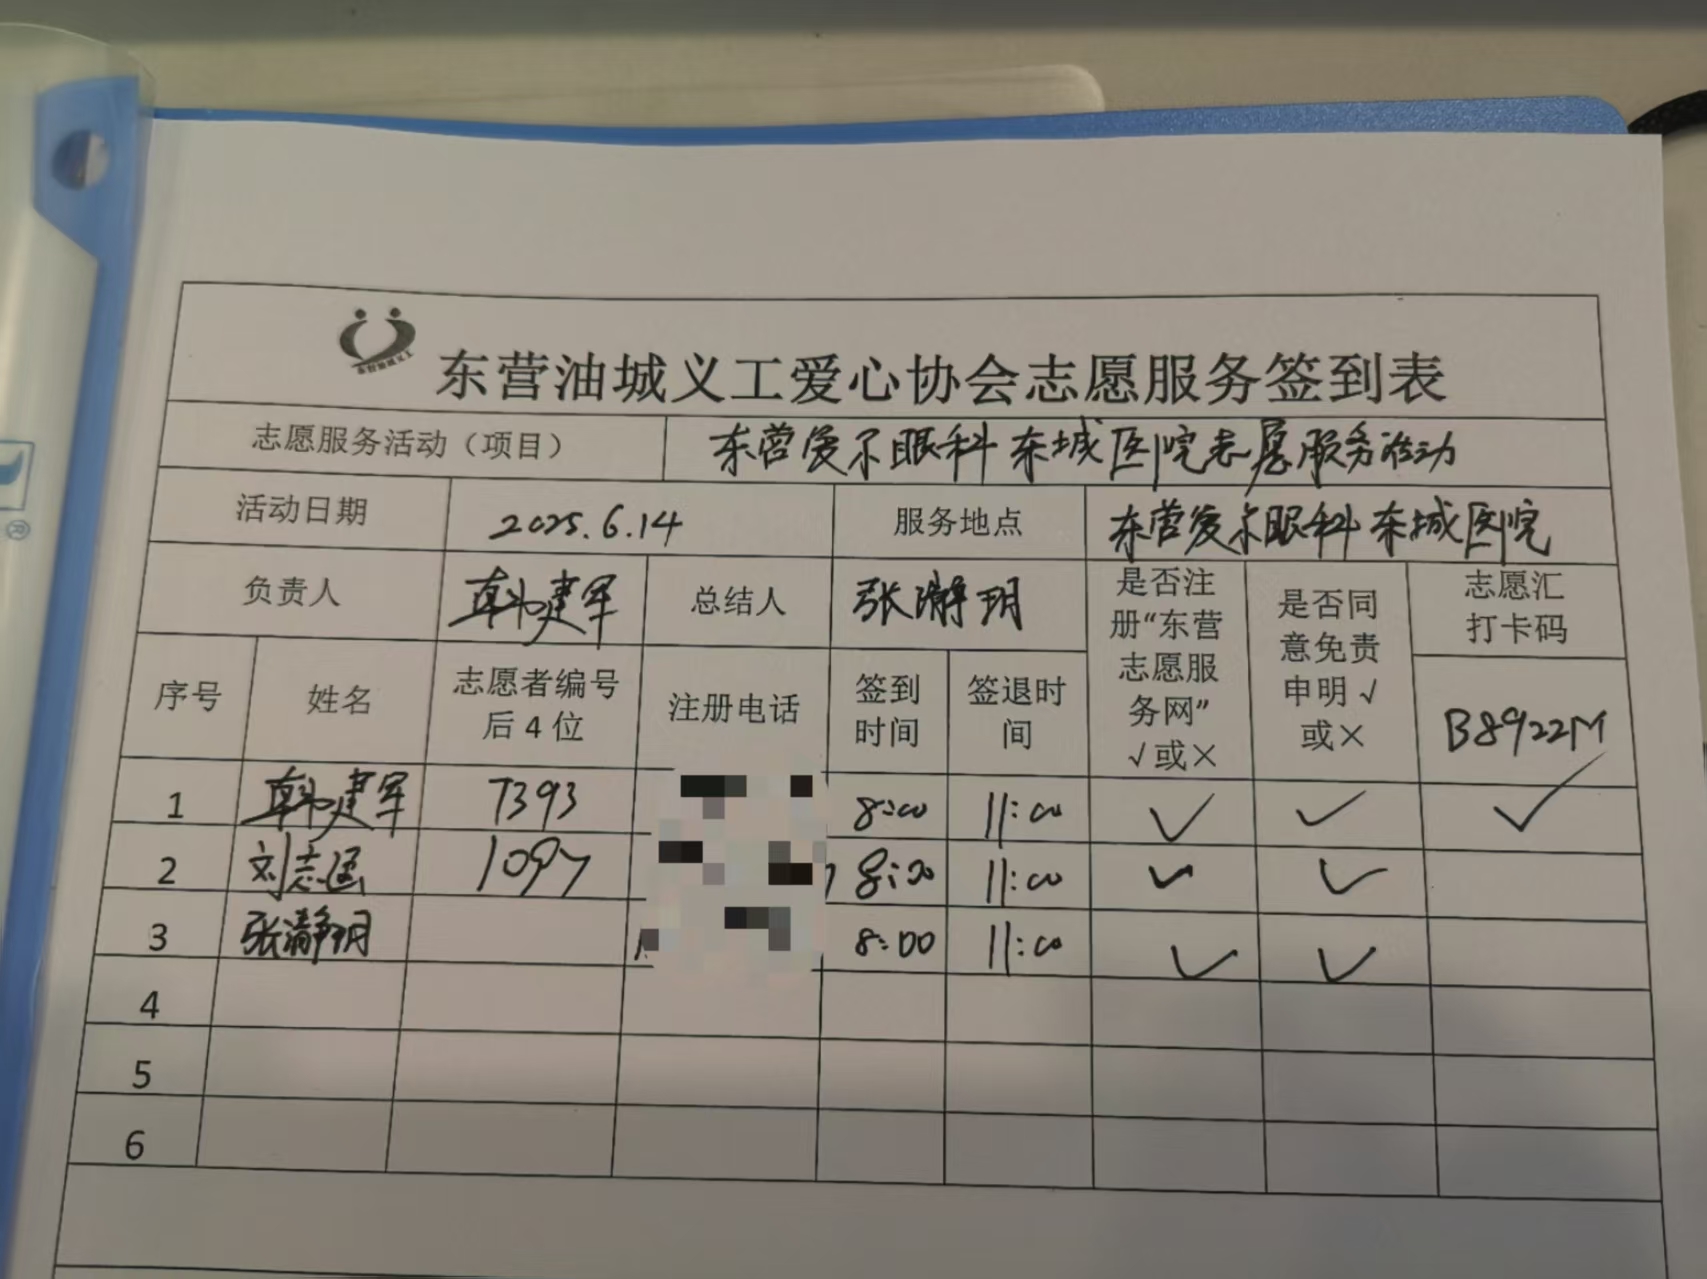 东营油城义工
东营油城义工爱心协会志愿服务签到表
志愿服务活动（项目） 东营爱尔眼科东城医院志愿服务活动
活动日期 2025.6.14 服务地点 东营爱尔眼科东城医院
负责人 韩建军 总结人 张静玥 是否注册“东营志愿服务网”√或× 是否同意免责申明√或× 志愿汇打卡码
序号 姓名 志愿者编号后4位 注册电话 签到时间 签退时间 B8922M
1 韩建军 7393 8:00 11:00 ✓ ✓ ✓
2 刘志 1097 8:20 11:00 ✓ ✓
3 张静玥 8:00 11:00 ✓ ✓
4
5
6